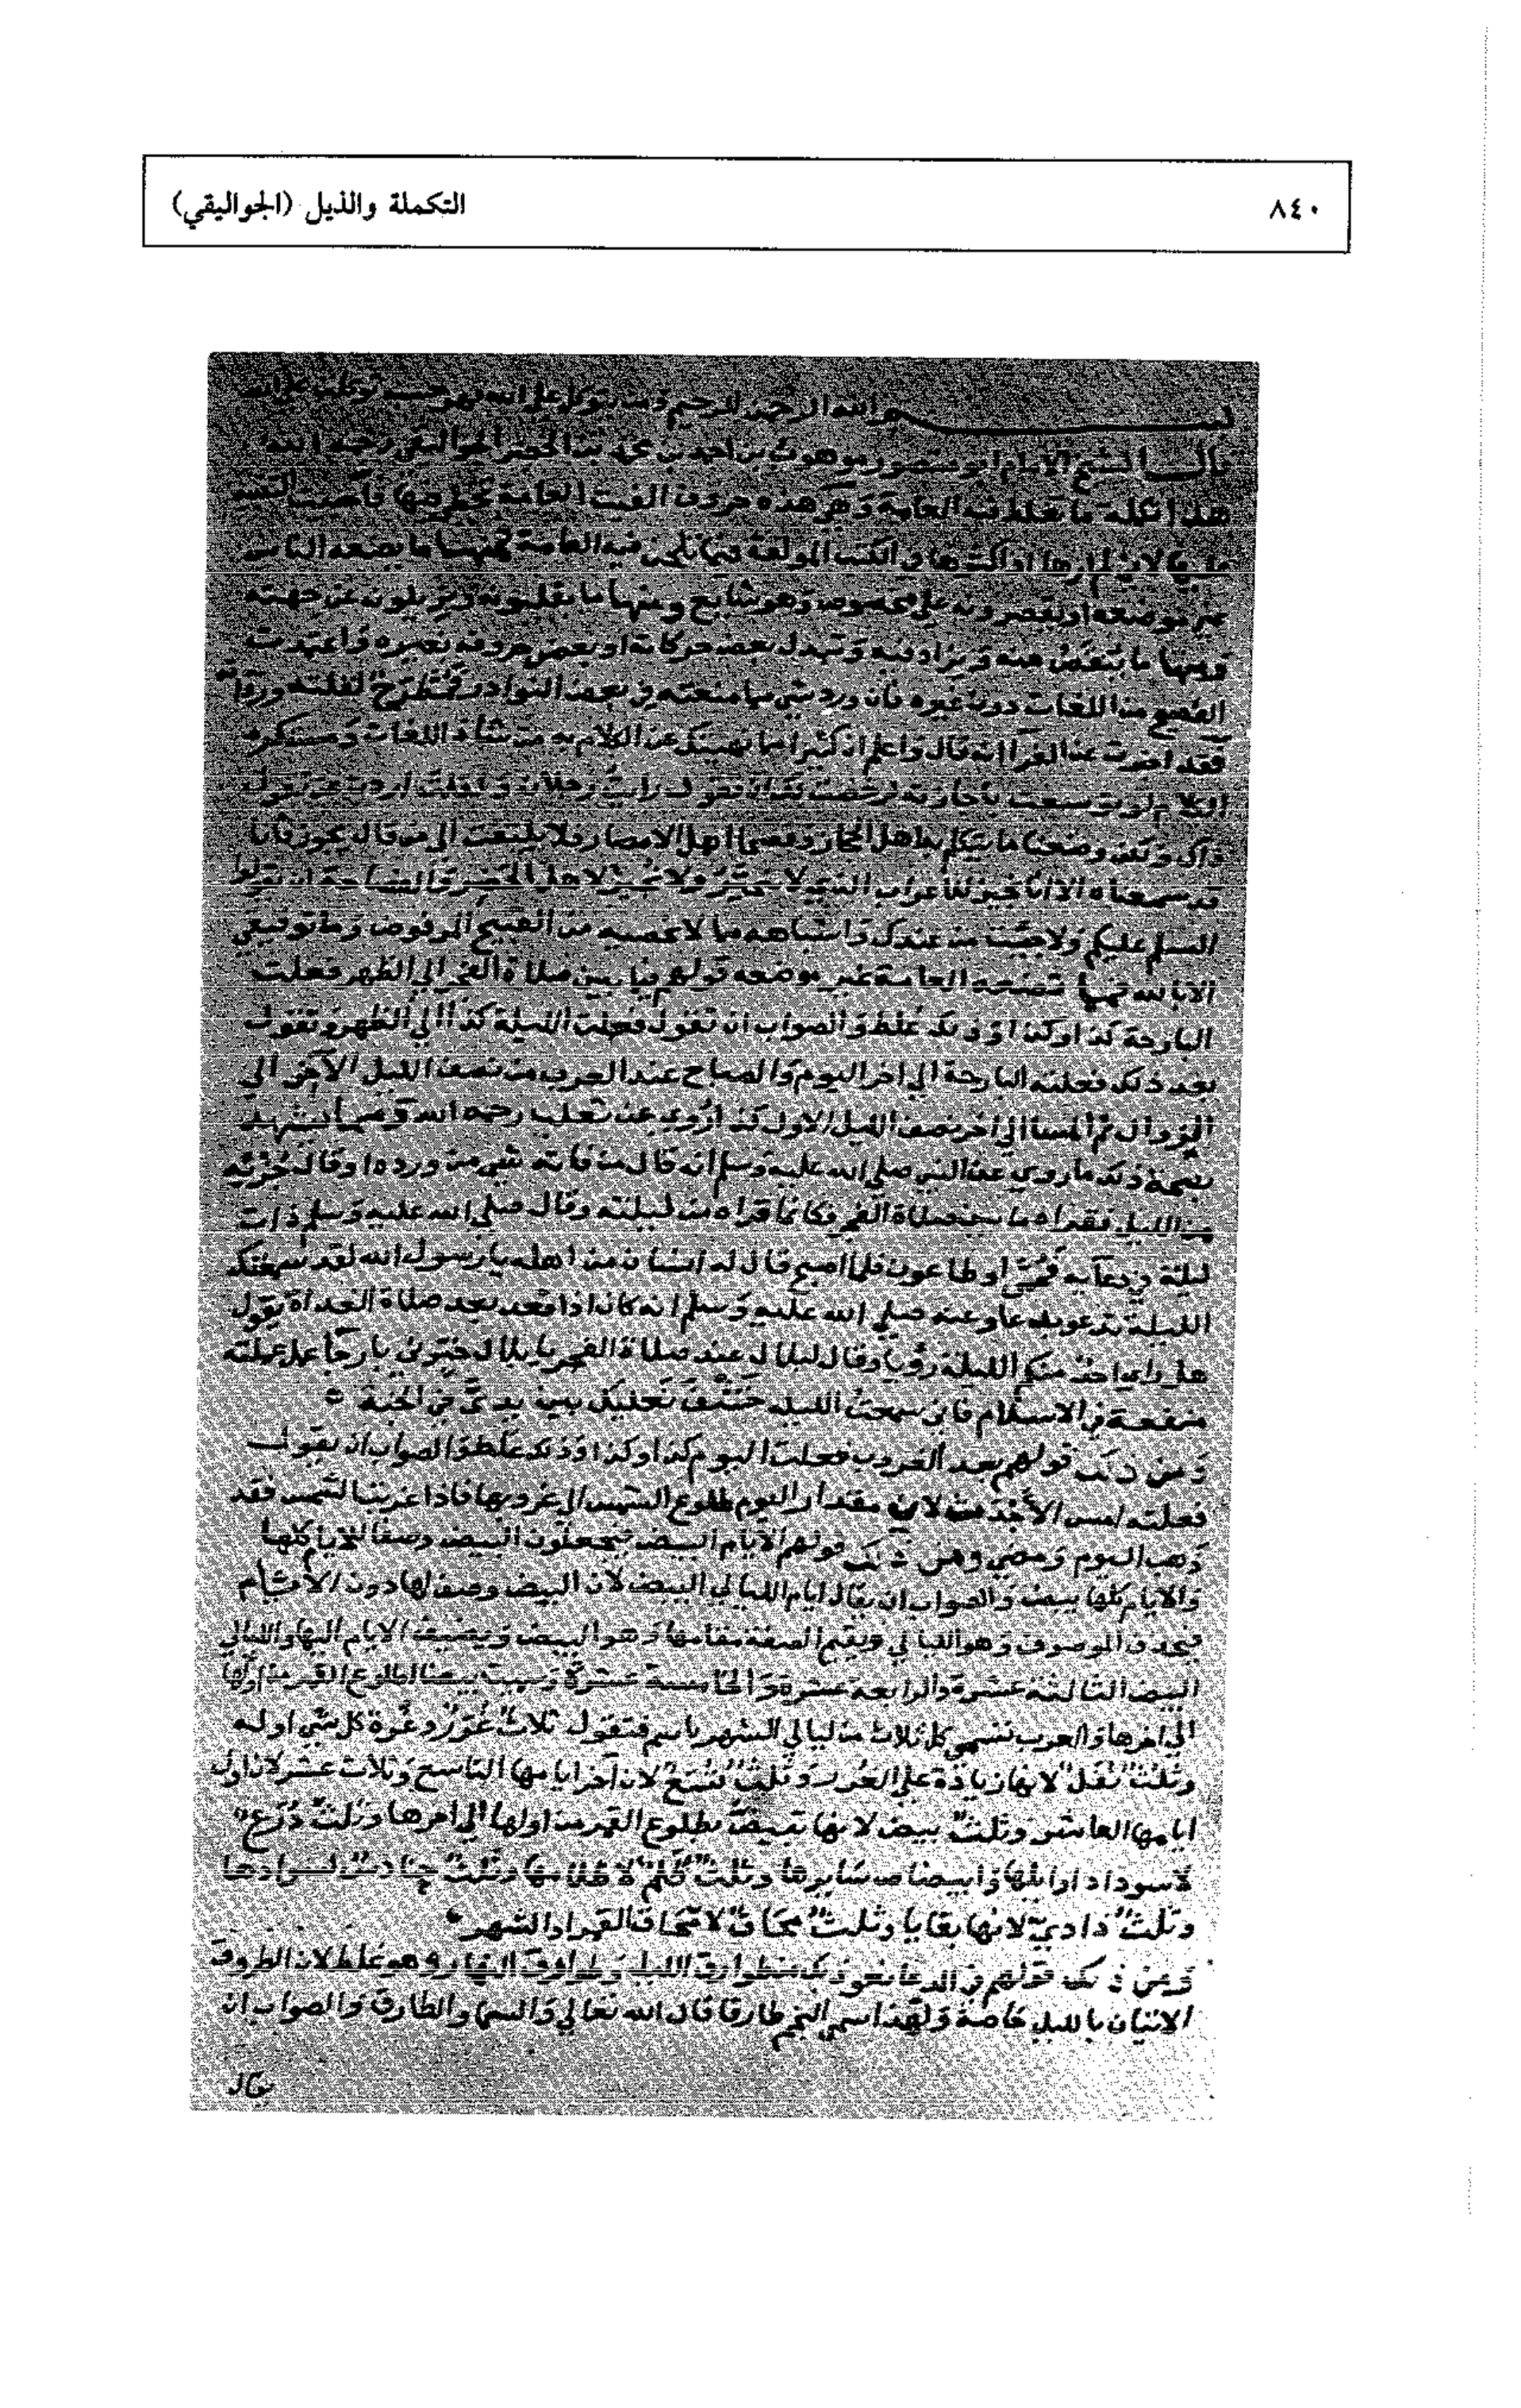 ٨٤٠
التكملة والذيل (الجواليقي)
بسم الله الرحمن الرحيم ومن يتوكل على الله فهو حسبه توكلت على الله
قال الشيخ الامام ابو منصور موهوب بن احمد بن محمد بن الخضر الجواليقي رحمه الله
هذا تكملة ما تغلط فيه العامة هذه حروف الفيت العامة تخطئ فيها فأحببت التنبيه
عليها لاني لم ارها او اكثرها في الكتب المؤلفة فيما تلحن فيه العامة فمنها ما يضعه الناس
غير موضعه او يقصرونه على مخصوص وهو شايع ومنها ما يقلبونه ويزيلونه عن جهته
ومنها ما ينقص منه ويزاد فيه وتبدل بعض حركاته او بعض حروفه بغيره واعتمدت
الفصيح من اللغات دون غيره فان ورد شي مما منعته في بعض النوادر فمطرح لقلته ورداته
فقد اخبرت عن الفرا انه قال واعلم ان كثيرا مما نهيتك عن الكلام به من شاذ اللغات ومستكره
الكلام لو توسعت باجازته لرخصت لك ان تقول رايت رجلان ولقلت اردت عن تقول
ذاك وكن وضعنا ما يتكلم به اهل الحجاز وفصحا اهل الامصار فلا يلتفت الى من قال يجوز فانا
قد سمعناه الا انا نجيز للاعراب الذي لا يتخير ولا نجيز لاهل الحضر والفصاحة ان يقولوا
السلام عليكم ولا جيت من عندك واشباهه مما لا نحصيه من القبيح المرفوض وما توفيقي
الا بالله فمما تضعه العامة غير موضعه قولهم فيما بين صلاة الفجر الى الظهر فعلت
البارحة كذا وكذا وذلك غلط والصواب ان تقول فعلت الليلة كذا الى الظهر وتقول
بعد ذلك فعلته البارحة الى اخر اليوم والصباح عند العرب من نصف الليل الاخر الى
الزوال ثم المسا الى اخر نصف الليل الاول كذا روي عن ثعلب رحمه الله ومما يشهد
بصحة ذلك ما روي عن النبي صلى الله عليه وسلم انه قال من فاته شي من ورده او قال حزبه
من الليل فقراه ما بين صلاة الفجر فكانما قراه من ليلته وقال صلى الله عليه وسلم ذات
ليلة في دعايه فلما اصبح قال له انسان من اهله يا رسول الله لقد سمعتك
الليلة تدعو بدعا وعنه صلى الله عليه وسلم انه كان اذا قعد بعد صلاة الغداة يقول
هل راى احد منكم الليلة رؤيا وقال لبلال عند صلاة الفجر يا بلال خبرني بارجا عمل عملته
منفعة في الاسلام فاني سمعت الليله خشف نعليك بين يدي في الجنة
ومن ذلك قولهم بعد الغروب فعلت اليوم كذا وكذا وذلك غلط والصواب ان يقول
فعلته امس الاحدث لان مقدار اليوم طلوع الشمس الى غروبها فاذا غربت الشمس فقد
ذهب اليوم ومضى ومن ذلك قولهم الايام البيض فيجعلون البيض وصفا للايام كلها
والايام كلها بيض والصواب ان يقال ايام الليالي البيض لان البيض وصف لها دون الايام
فتحذف الموصوف وهو الليالي وتقيم الصفة مقامها وهو البيض وتضيف الايام اليها والليالي
البيض الثالثة عشرة والرابعة عشرة والخامسة عشرة وسميت بيضا لطلوع القمر من اولها
الى اخرها والعرب تسمي كل ثلاث من ليالي الشهر باسم فتقول ثلاث غرر وغرة كل شي اوله
وثلث نفل لانها زيادة على الغرر وثلث تسع لان اخر ايامها التاسع وثلاث عشر لان اول
ايامها العاشر وثلث بيض لانها تبيض بطلوع القمر من اولها الى اخرها وثلث درع
لاسوداد اوايلها وابيضاض سايرها وثلث ظلم لاظلامها وثلث حنادس لسوادها
وثلث دادي لانها بقايا وثلث محاق لامحاق القمر او الشهر
ومن ذلك قولهم في الدعا نعوذ بك من طوارق الليل وطوارق النهار وهو غلط لان الطروق
الاتيان بالليل خاصة ولهذا سمي النجم طارقا قال الله تعالى والسما والطارق والصواب ان
يقال